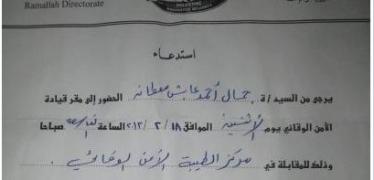 Ramallah Directorate
استدعاء
يرجى من السيد/ة جمال أحمد عايش معطان الحضور إلى مقر قيادة
الأمن الوقائي يوم الاثنين الموافق ١٨/ ٢/ ٢٠١٣ الساعة صباحا
وذلك للمقابلة في مركز الطيبة الأمن الوقائي.